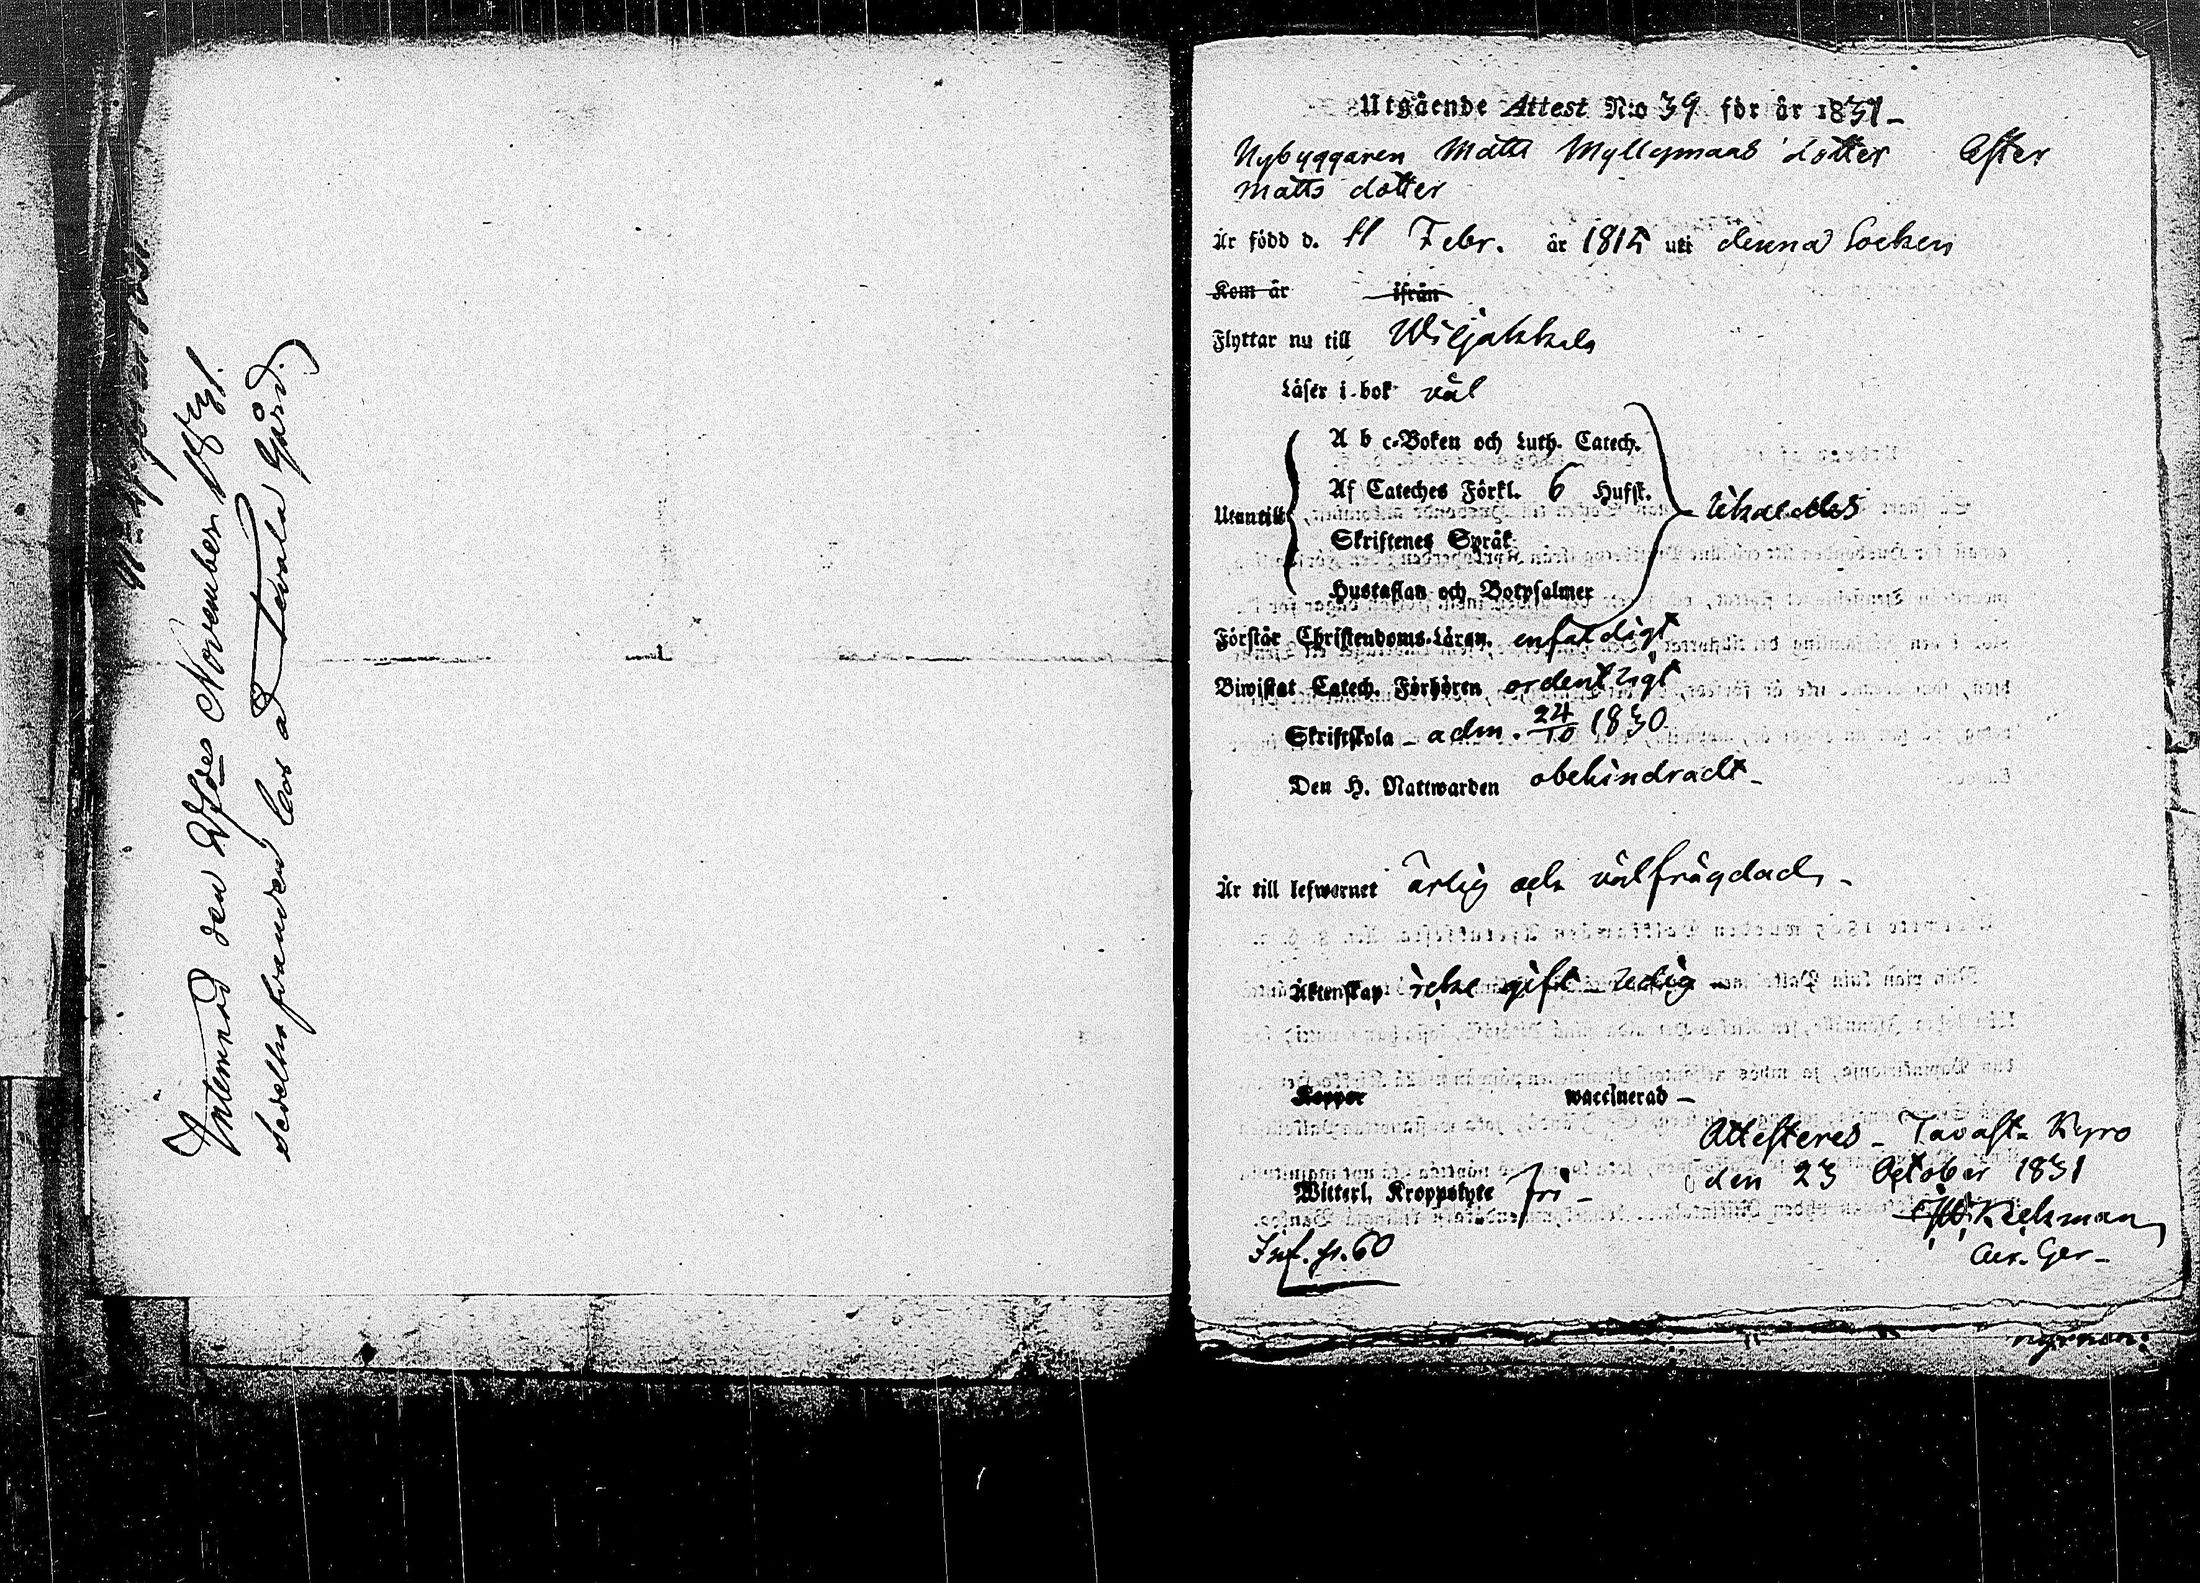 Intemnad den November
sedelhafvanden hos å Tevala Gård.)
Utgående Attest N:o 39 för år 1831 -
Nybyggaren Matts Myllymaas dotter Ester
Matts dotter
Är född d. 11 Febr. år 1815 uti denna Socken
Kom år ifrån
Flyttar nu till Wiljakkala
Läser i bok väl
A b c-Boken och Luth. Catech.
Af Cateches Förkl. 6 Hufst.
Utantill
Skriftenes Språk
Hustaflan och Botpsalmer
Förstår Christendoms-Läran. enfaldigt
Biwistat Catech. Förhören ordentligt
Skriftskola - adm. 24/10 1830
Den H. Nattwarden obehindradt -
Är till lefwernet ärlig och välfrägdad -
Äktenskap icke gift ledig
Koppor waccinerad -
Attesteres - Tavast-Kyro
den 23 October 1831
Witterl. Kroppslyte fri -
Kiekman
Inf. p. 60